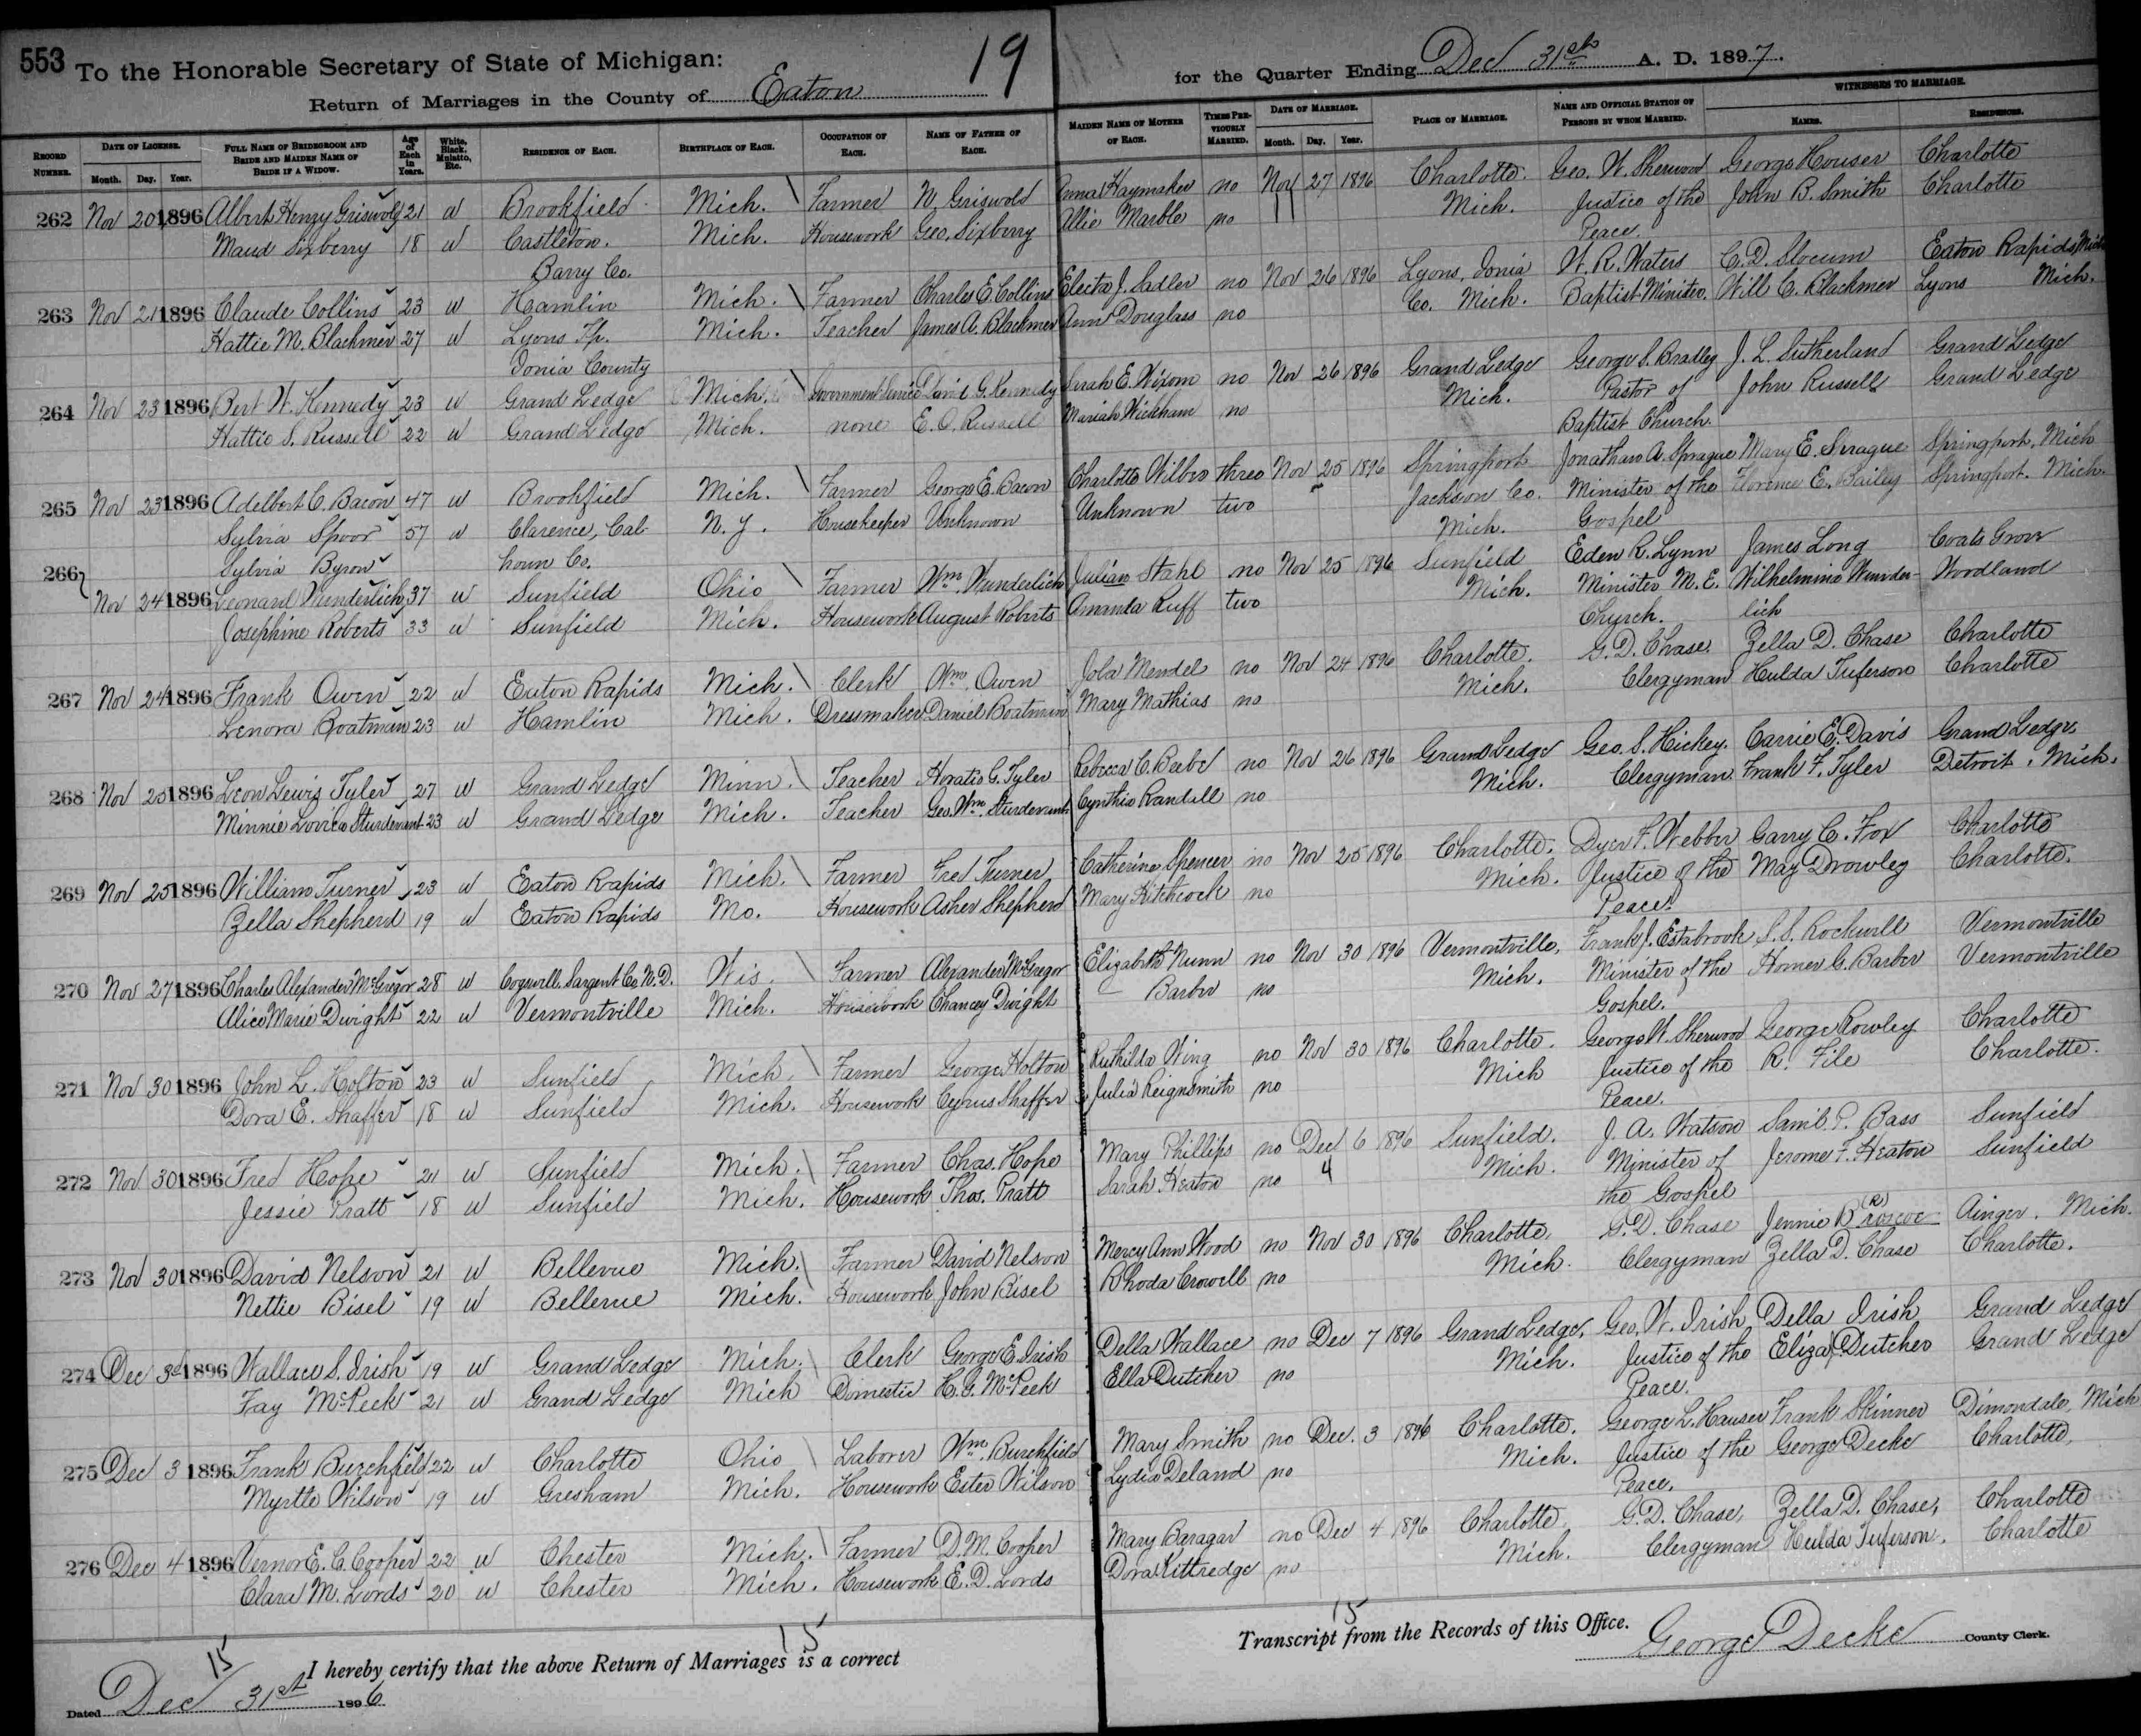 553 To the Honorable Secretary of State of Michigan: 19 for the Quarter Ending Dec 31st A. D. 1897.
Return of Marriages in the County of Eaton
RECORD NUMBER. DATE OF LICENSE. Month. Day. Year. FULL NAME OF BRIDEGROOM AND BRIDE AND MAIDEN NAME OF BRIDE IF A WIDOW. Age of Each in Years. White, Black, Mulatto, Etc. RESIDENCE OF EACH. BIRTHPLACE OF EACH. OCCUPATION OF EACH. NAME OF FATHER OF EACH. MAIDEN NAME OF MOTHER OF EACH. TIMES PREVIOUSLY MARRIED. DATE OF MARRIAGE. Month. Day. Year. PLACE OF MARRIAGE. NAME AND OFFICIAL STATION OF PERSONS BY WHOM MARRIED. WITNESSES TO MARRIAGE. NAMES. RESIDENCES.
262 Nov 20 1896 Albert Henry Griswold 21 W Brookfield Mich. Farmer N. Griswold Anna Haymaker no Nov 27 1896 Charlotte. Geo. W. Sherwood George Houser Charlotte
Maud Sixberry 18 W Castleton. Mich. Housework Geo. Sixberry Allie Marble no Mich. Justice of the John B. Smith Charlotte
Barry Co. Peace.
263 Nov 21 1896 Claude Collins 23 W Hamlin Mich. Farmer Charles E. Collins Electa J. Sadler no Nov 26 1896 Lyons, Ionia W. R. Waters C. D. Slocum Eaton Rapids Mich
Hattie M. Blackmer 27 W Lyons Tp. Mich. Teacher James A. Blackmer Ann Douglass no Co. Mich. Baptist Minister. Will C. Blackmer Lyons Mich.
Ionia County
264 Nov 23 1896 Bert W. Kennedy 23 W Grand Ledge Mich. Government Service David G. Kennedy Sarah E. Wixom no Nov 26 1896 Grand Ledge George S. Bradley J. L. Sutherland Grand Ledge
Hattie S. Russell 22 W Grand Ledge Mich. none E. O. Russell Mariah Wickham no Mich. Pastor of John Russell Grand Ledge
Baptist Church.
265 Nov 23 1896 Adelbert C. Bacon 47 W Brookfield Mich. Farmer George E. Bacon Charlotte Wilbro three Nov 25 1896 Springport Jonathan A. Sprague Mary E. Sprague Springport, Mich
Sylvia Spoor 57 W Clarence, Cal- N. Y. Housekeeper Unknown Unknown two Jackson Co. Minister of the Florence E. Bailey Springport. Mich.
Sylvia Byron houn Co. Mich. Gospel
266 Nov 24 1896 Leonard Wunderlich 37 W Sunfield Ohio Farmer Wm. Wunderlich Julian Stahl no Nov 25 1896 Sunfield Eden R. Lynn James Long Coats Grove
Josephine Roberts 33 W Sunfield Mich. Housework August Roberts Amanda Ruff two Mich. Minister M. E. Wilhelmine Wunder- Woodland
Church. lich
267 Nov 24 1896 Frank Owen 22 W Eaton Rapids Mich. Clerk Wm. Owen Iola Mendel no Nov 24 1896 Charlotte. G. D. Chase. Zella D. Chase Charlotte
Lenora Boatman 23 W Hamlin Mich. Dressmaker Daniel Boatman Mary Mathias no Mich. Clergyman Hulda Tuferson Charlotte
268 Nov 25 1896 Leon Lewis Tyler 27 W Grand Ledge Minn. Teacher Horatio G. Tyler Rebecca C. Beebe no Nov 26 1896 Grand Ledge Geo. S. Hickey. Carrie E. Davis Grand Ledge
Minnie Lovica Sturdevant 23 W Grand Ledge Mich. Teacher Geo. Wm. Sturdevant Cynthia Randall no Mich. Clergyman Frank F. Tyler Detroit, Mich.
269 Nov 25 1896 William Turner 23 W Eaton Rapids Mich. Farmer Fred Turner Catherine Spencer no Nov 25 1896 Charlotte. Dyer F. Webber Garry C. Fox Charlotte
Zella Shepherd 19 W Eaton Rapids Mo. Housework Asher Shepherd Mary Hitchcock no Mich. Justice of the May Drowley Charlotte.
Peace.
270 Nov 27 1896 Charles Alexander McGregor 28 W Cogswell, Sargent Co. N. D. Wis. Farmer Alexander McGregor Elizabeth Nunn no Nov 30 1896 Vermontville, Frank J. Estabrook S. S. Rockwell Vermontville
Alice Marie Dwight 22 W Vermontville Mich. Housework Chancey Dwight Barber no Mich. Minister of the Homer G. Barber Vermontville
Gospel.
271 Nov 30 1896 John L. Holton 23 W Sunfield Mich. Farmer George Holton Ruthilda Wing no Nov 30 1896 Charlotte. George W. Sherwood George Rowley Charlotte
Dora E. Shaffer 18 W Sunfield Mich. Housework Cyrus Shaffer Julia Reignsmith no Mich Justice of the R. File Charlotte.
Peace.
272 Nov 30 1896 Fred Hope 21 W Sunfield Mich. Farmer Chas. Hope Mary Phillips no Dec 6 1896 Sunfield. J. A. Watson Saml. P. Bass Sunfield
Jessie Pratt 18 W Sunfield Mich. Housework Thos. Pratt Sarah Heaton no 4 Mich. Minister of Jerome F. Heaton Sunfield
the Gospel
273 Nov 30 1896 David Nelson 21 W Bellevue Mich. Farmer David Nelson Mercy Ann Wood no Nov 30 1896 Charlotte, G. D. Chase Jennie B (R) roscoe Ainger. Mich.
Nettie Bisel 19 W Bellevue Mich. Housework John Bisel Rhoda Crowell no Mich. Clergyman Zella D. Chase Charlotte.
274 Dec 3d 1896 Wallace S. Irish 19 W Grand Ledge Mich. Clerk George E. Irish Della Wallace no Dec 7 1896 Grand Ledge, Geo. W. Irish Della Irish Grand Ledge
Fay McPeek 21 W Grand Ledge Mich Domestic H. G. McPeek Ella Dutcher no Mich. Justice of the Eliza Dutcher Grand Ledge
Peace.
275 Dec 3 1896 Frank Burchfield 22 W Charlotte Ohio Laborer Wm. Burchfield Mary Smith no Dec. 3 1896 Charlotte. George L. Hauser Frank Skinner Dimondale, Mich
Myrtle Wilson 19 W Gresham Mich. Housework Ester Wilson Lydia Deland no Mich. Justice of the George Decke Charlotte,
Peace.
276 Dec 4 1896 Vernor E. C. Cooper 22 W Chester Mich. Farmer D. M. Cooper Mary Baragar no Dec 4 1896 Charlotte, G. D. Chase, Zella D. Chase, Charlotte
Clara M. Lords 20 W Chester Mich. Housework E. D. Lords Dora Kittredge no Mich. Clergyman Hulda Tuferson. Charlotte
15 15 15
I hereby certify that the above Return of Marriages is a correct Transcript from the Records of this Office. George Decke County Clerk.
Dated Dec 31st 1896